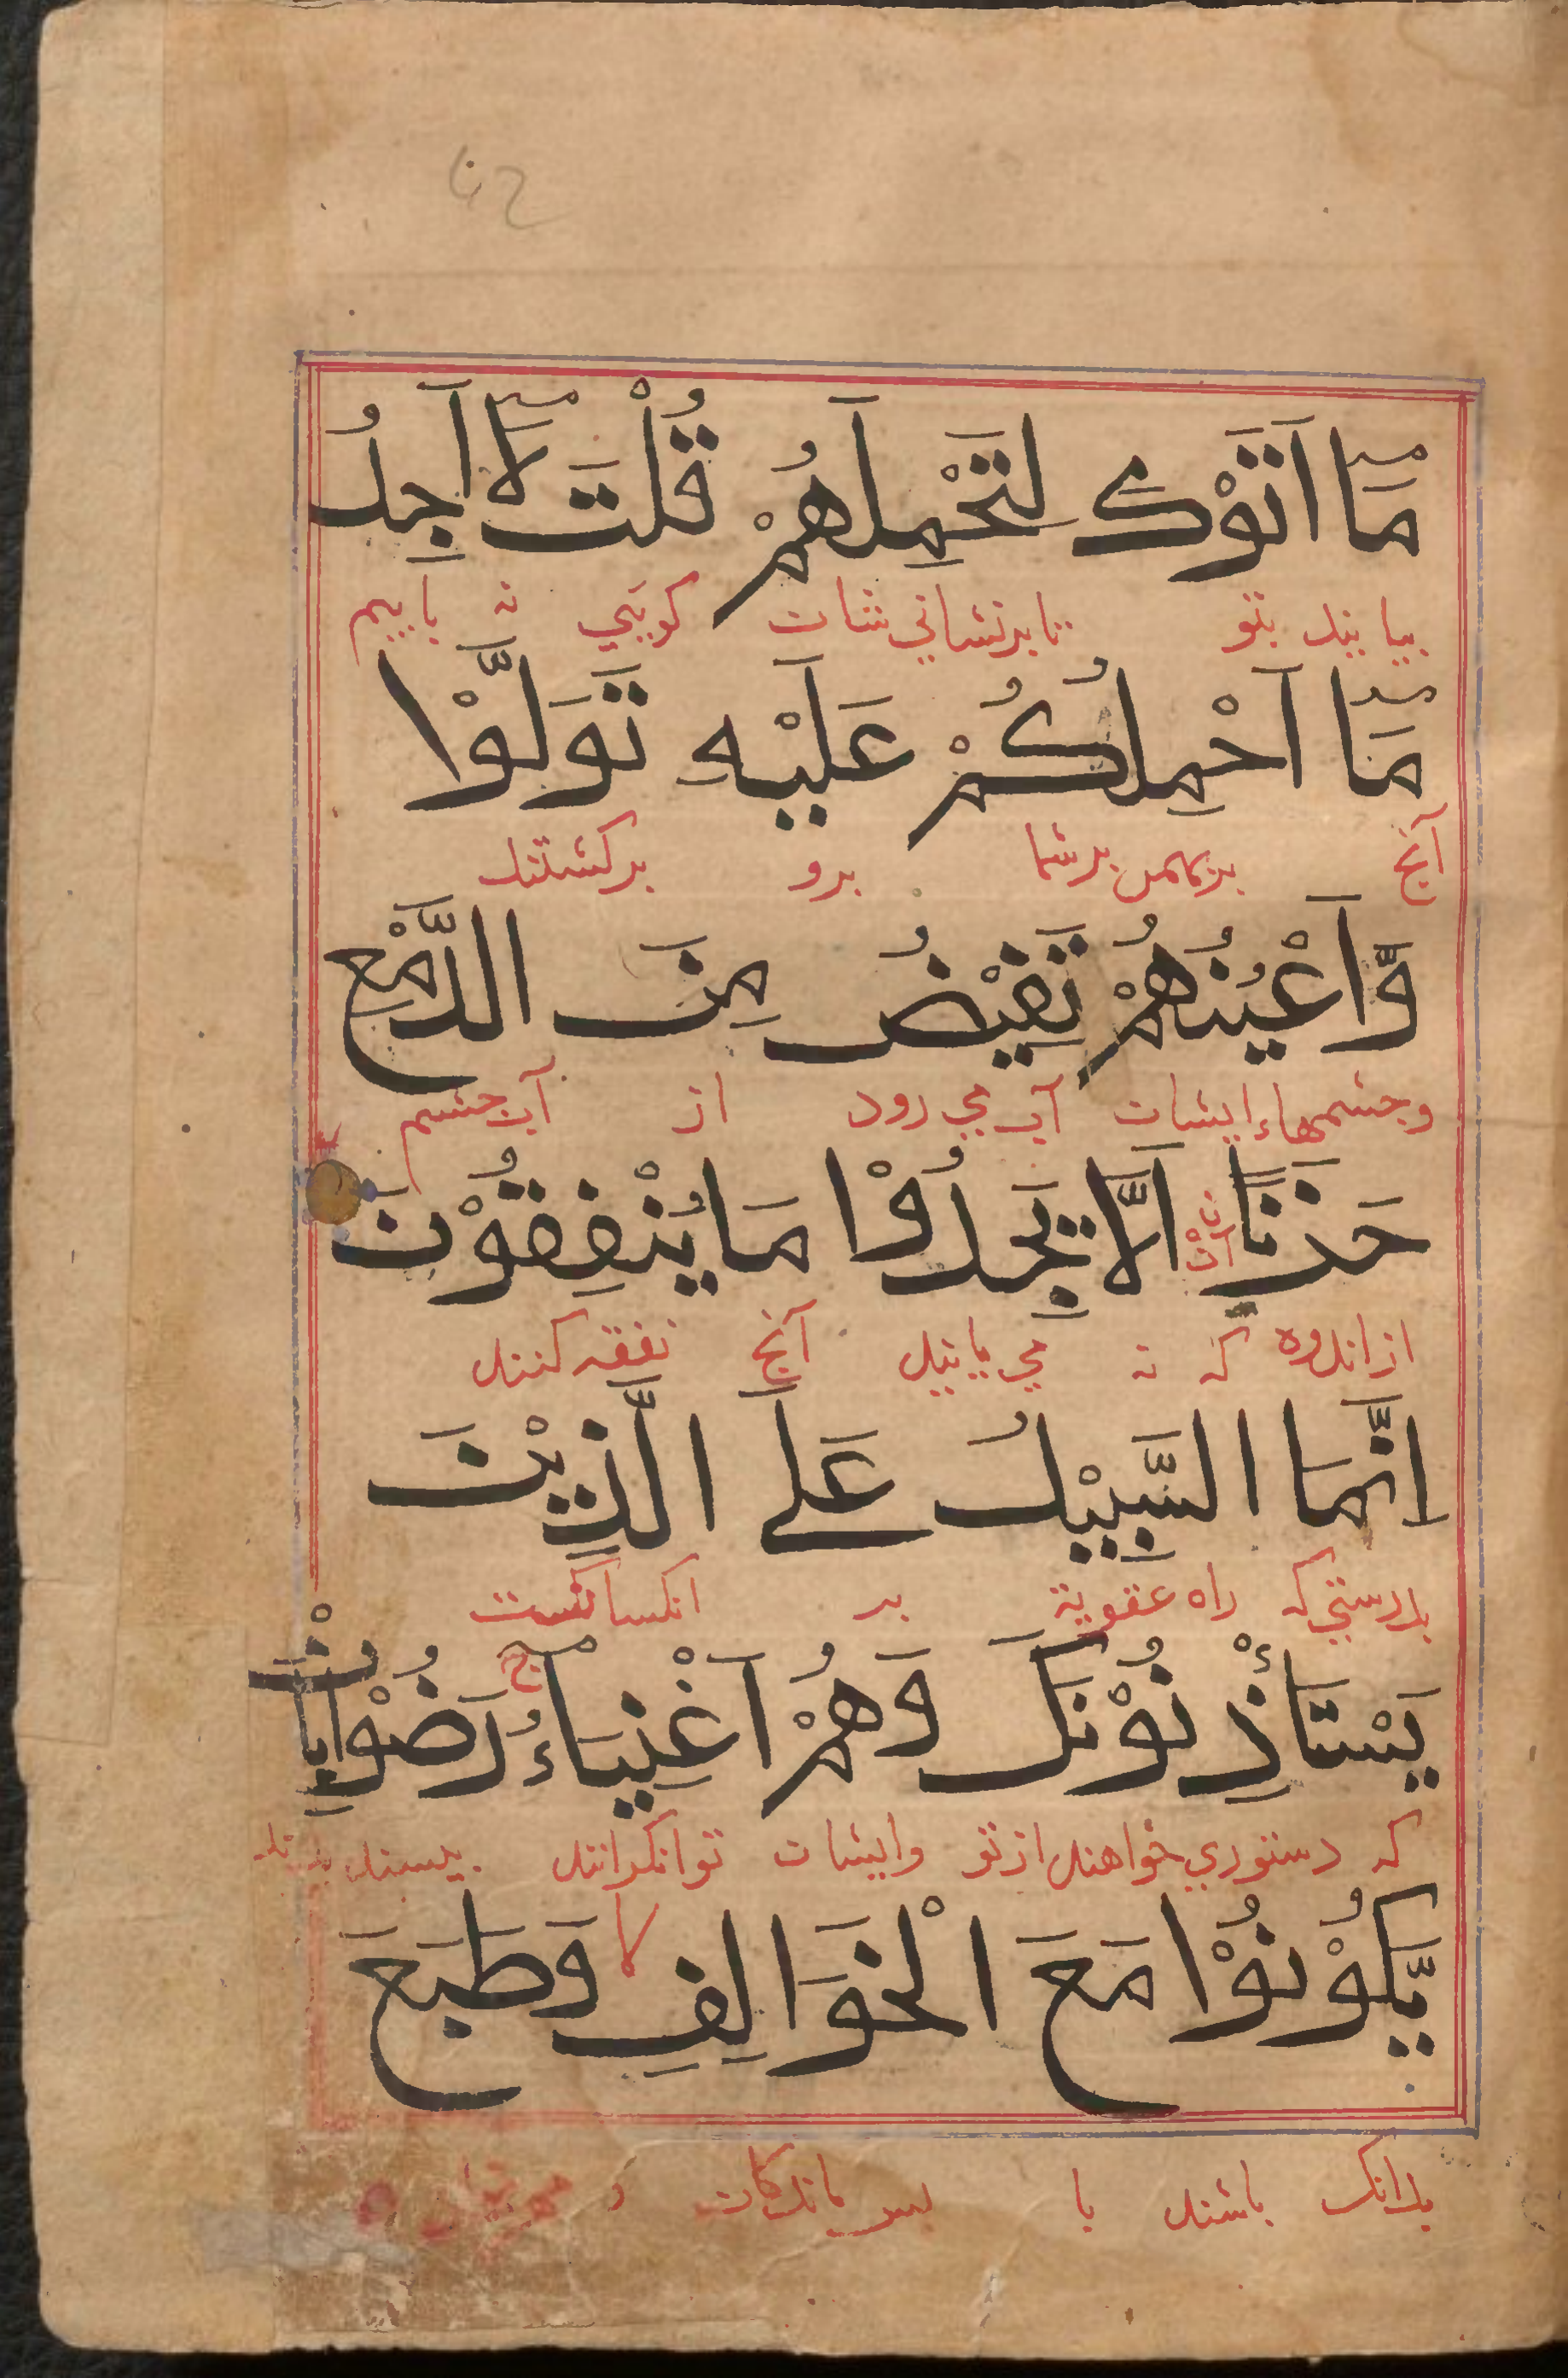 مَآ اَتَوْكَ لِتَحْمِلَهُمْ قُلْتَ لَآ اَجِدُ
بیایند بتو تا برنشانی شان کویی نه یابیم
مَآ اَحْمِلُكُمْ عَلَيْهِ تَوَلَّوْا
آنچ برو برکشتند
وَّاَعْيُنُهُمْ تَفِيْضُ مِنَ الدَّمْعِ
وجشمهاء ایشان آب می رود از آب جشم
حَزَنًا اَلَّا يَجِدُوْا مَا يُنْفِقُوْنَ
از اندوه که نه می یابند آنچ نفقه کنند
اِنَّمَا السَّبِيْلُ عَلَى الَّذِيْنَ
بدرستی که راه عقوبة بر انکسانست
يَسْتَأْذِنُوْنَكَ وَهُمْ اَغْنِيَآءُ ج رَضُوْا بِاَنْ
که دستوری خواهند از تو وایشان توانکرانند بسند
يَّكُوْنُوْا مَعَ الْخَوَالِفِ لا وَطَبَعَ
بدانک باشند با بس ماندکان و